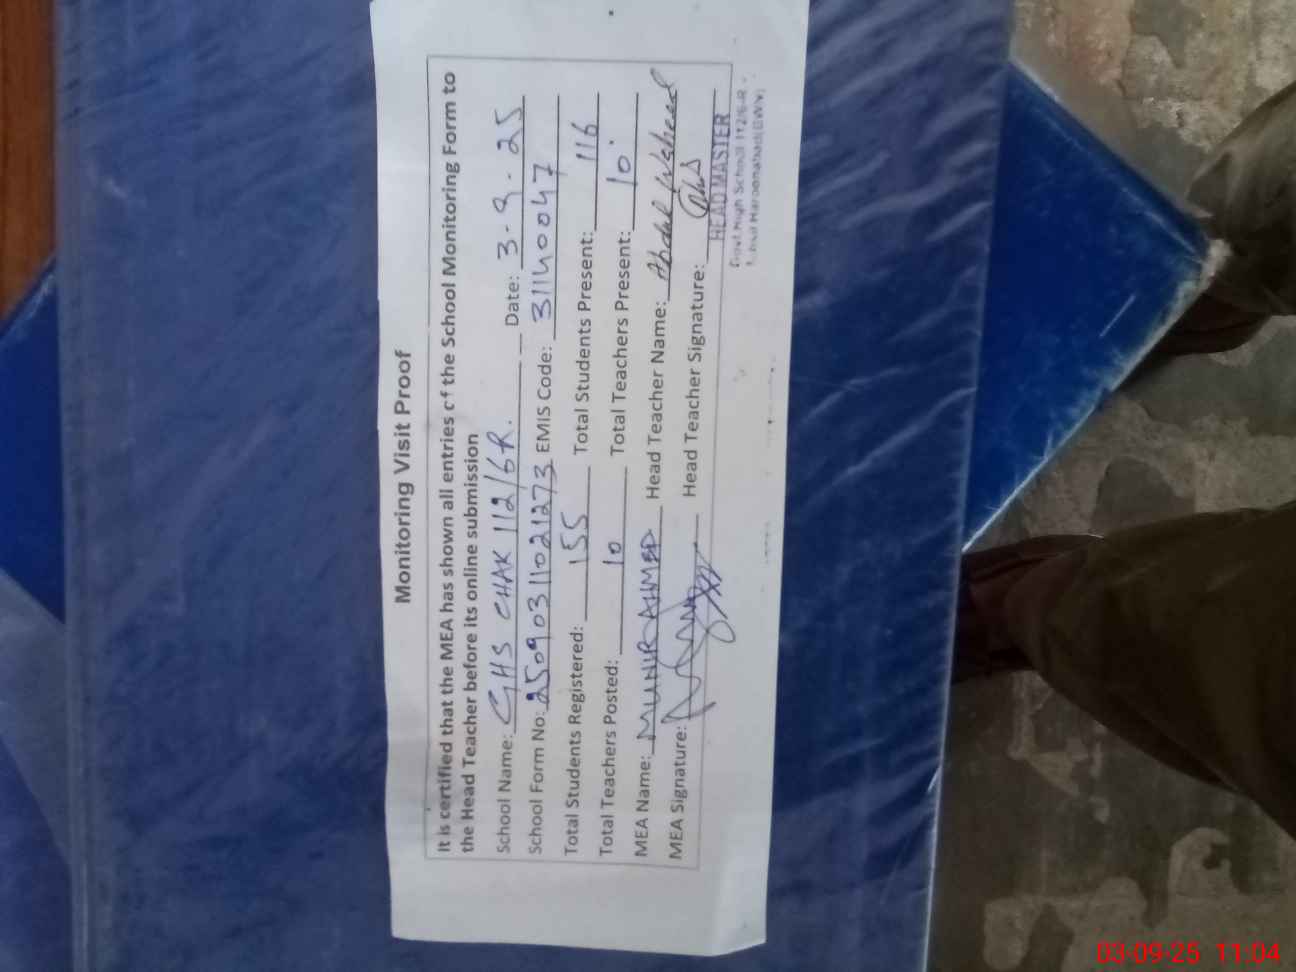 Monitoring Visit Proof
It is certified that the MEA has shown all entries of the School Monitoring Form to
the Head Teacher before its online submission
School Name: GHS CHAK 112/6R. Date: 3-9-25
School Form No: 25090311021273 EMIS Code: 31140047
Total Students Registered: 155 Total Students Present: 116
Total Teachers Posted: 10 Total Teachers Present: 10
MEA Name: MUNIR AHMED Head Teacher Name: Abdul Waheed
MEA Signature: Head Teacher Signature:
HEAD MASTER
Govt High School 112/6-R
Haroonabad(BWN)
03-09-25 11:04